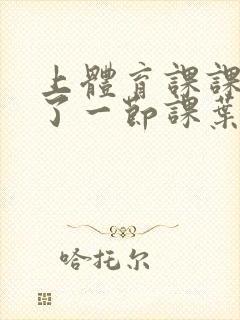 上體育課課
了一節課葉
哈托尔